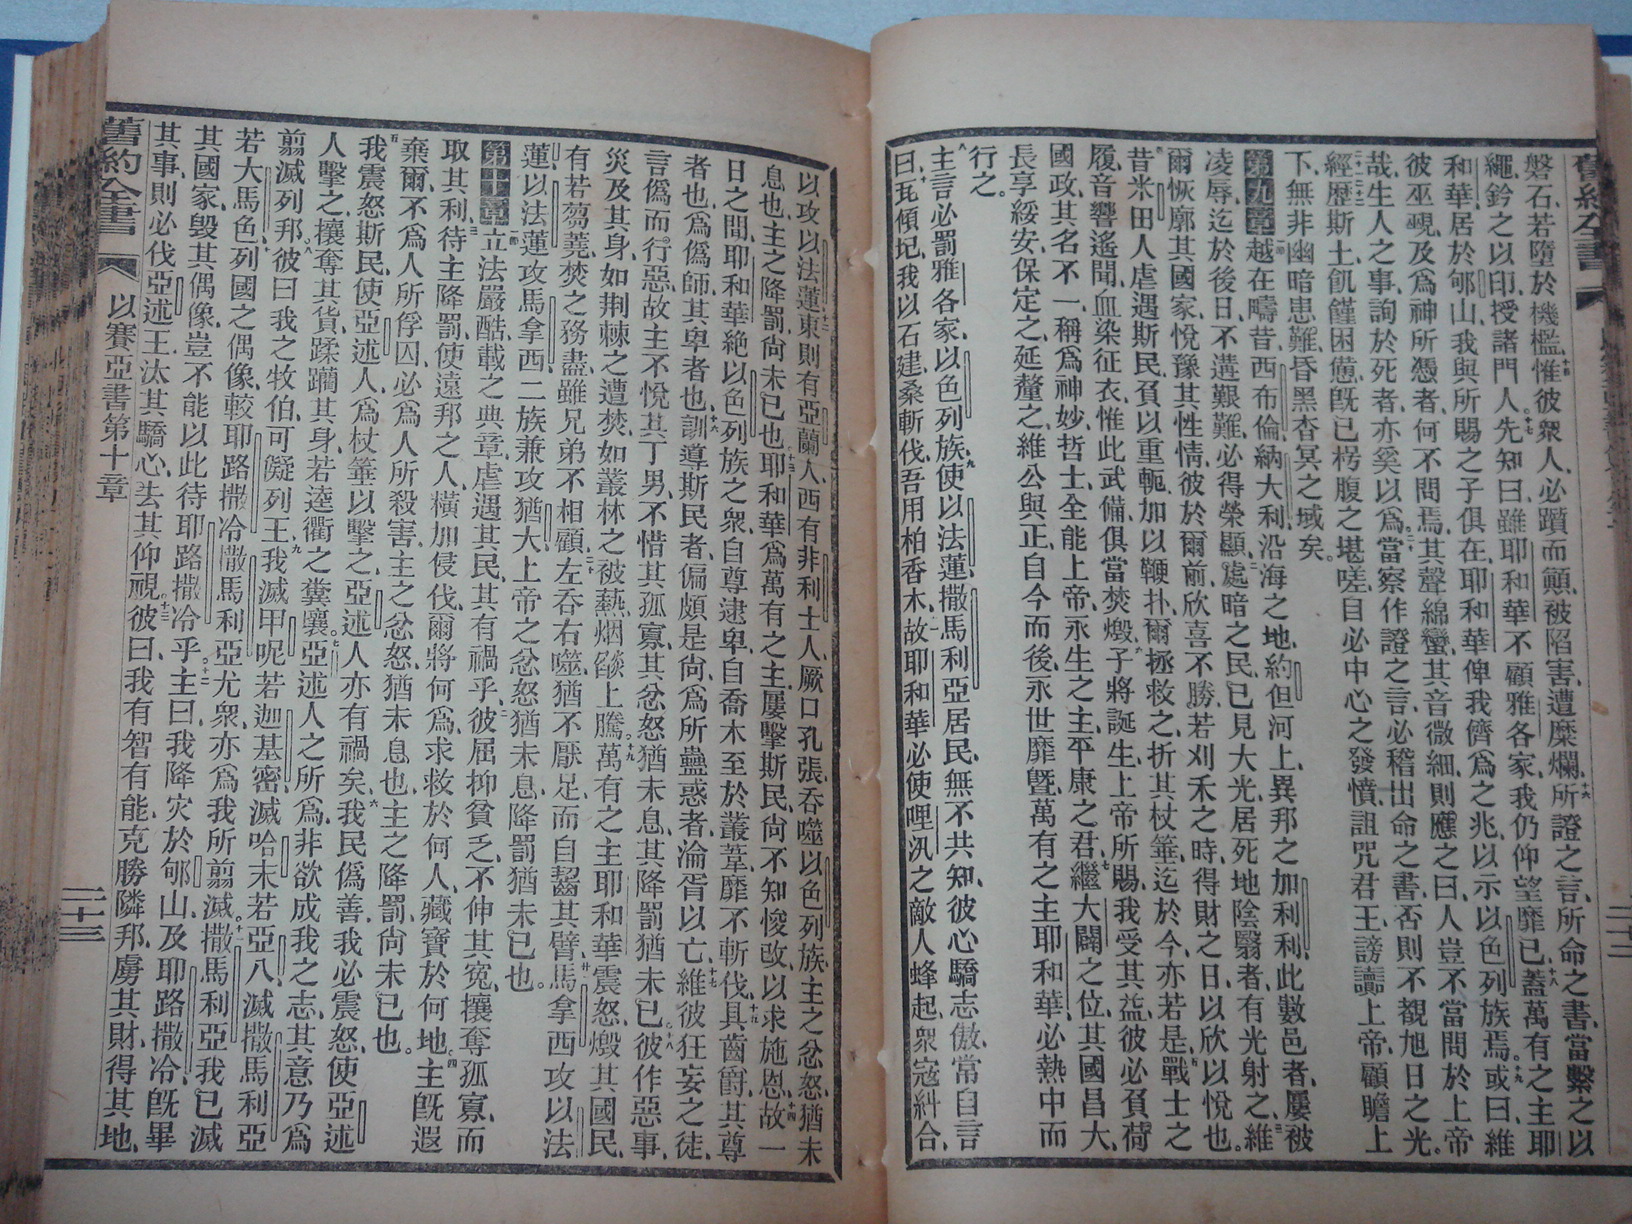 磐石、若墮於機檻、惟彼衆人、必躓而顚、被陷害、遭糜爛、所證之言、所命之書、當繫之以
繩、鈐之以印、授諸門人。先知曰、雖耶和華不顧雅各家、我仍仰望靡已、蓋萬有之主耶
和華居於郇山、我與所賜之子俱在、耶和華俾我儕爲之兆、以示以色列族焉。或曰、維
彼巫覡、及爲神所憑者、何不問焉、其聲綿蠻、其音微細、則應之曰、人豈不當問於上帝
哉、生人之事、詢於死者、亦奚以爲。當察作證之言、必稽出命之書、否則不覩旭日之光。
經歷斯土、飢饉困憊、旣已枵腹之堪嗟、自必中心之發憤、詛咒君王、謗讟上帝、顧瞻上
下、無非幽暗患難、昏黑杳冥之域矣。
第九章 越在疇昔、西布倫、納大利、沿海之地、約但河上、異邦之加利利、此數邑者、屢被
凌辱、迄於後日、不遘艱難、必得榮顯。處暗之民、已見大光、居死地陰翳者、有光射之、維
爾恢廓其國家、悅豫其性情、彼於爾前、欣喜不勝、若刈禾之時、得財之日、以欣以悅也。
昔米田人虐遇斯民、負以重軛、加以鞭扑、爾拯救之、折其杖箠、迄於今、亦若是、戰士之
履、音響遙聞、血染征衣、惟此武備、俱當焚燬。子將誕生、上帝所賜、我受其益、彼必負荷
國政、其名不一、稱爲神妙、哲士、全能上帝、永生之主、平康之君、繼大闢之位、其國昌大、
長享綏安、保定之、延釐之、維公與正、自今而後、永世靡曁、萬有之主耶和華、必熱中而
行之。
主言必罰雅各家、以色列族、使以法蓮、撒馬利亞居民、無不共知、彼心驕志傲、常自言
曰、瓦傾圮、我以石建、桑斬伐、吾用柏香木、故耶和華必使哩汛之敵人蜂起、衆寇糾合、
以攻以法蓮、東則有亞蘭人、西有非利士人、厥口孔張、吞噬以色列族、主之忿怒、猶未
息也、主之降罰、尙未已也。耶和華爲萬有之主、屢擊斯民、尙不知悛改、以求施恩、故一
日之間、耶和華絕以色列族之衆、自尊逮卑、自喬木至於叢葦、靡不斬伐、具齒爵、其尊
者也、爲僞師、其卑者也、訓導斯民者、偏頗是尙、爲所蠱惑者、淪胥以亡、維彼狂妄之徒、
言僞而行惡、故主不悅其丁男、不惜其孤寡、其忿怒猶未息、其降罰猶未已。彼作惡事、
災及其身、如荆棘之遭焚、如叢林之被爇、烟燄上騰。萬有之主耶和華震怒、燬其國民、
有若芻蕘、焚之務盡、雖兄弟不相顧、左吞右噬、猶不厭足、而自齧其臂、馬拿西攻以法
蓮、以法蓮攻馬拿西、二族兼攻猶大、上帝之忿怒猶未息、降罰猶未已也。
第十章 立法嚴酷、載之典章、虐遇其民、其有禍乎、彼屈抑貧乏、不伸其寃、攘奪孤寡、而
取其利、待主降罰、使遠邦之人、橫加侵伐、爾將何爲、求救於何人、藏寶於何地。主旣遐
棄爾、不爲人所俘囚、必爲人所殺害、主之忿怒猶未息也、主之降罰尙未已也。
我震怒斯民、使亞述人爲杖箠以擊之、亞述人亦有禍矣。我民僞善、我必震怒、使亞述
人擊之、攘奪其貨、蹂躪其身、若逵衢之糞壤。亞述人之所爲、非欲成我之志、其意乃爲
翦滅列邦、彼曰、我之牧伯、可儗列王、我滅甲呢若迦基密、滅哈末若亞八、滅撒馬利亞
若大馬色、列國之偶像、較耶路撒冷、撒馬利亞尤衆、亦爲我所翦滅。撒馬利亞、我已滅
其國家、毀其偶像、豈不能以此待耶路撒冷乎。主曰、我降災於郇山、及耶路撒冷旣畢
其事、則必伐亞述王、汰其驕心、去其仰視、彼曰、我有智有能、克勝隣邦、虜其財、得其地、
舊約全書 以賽亞書第十章 二十三